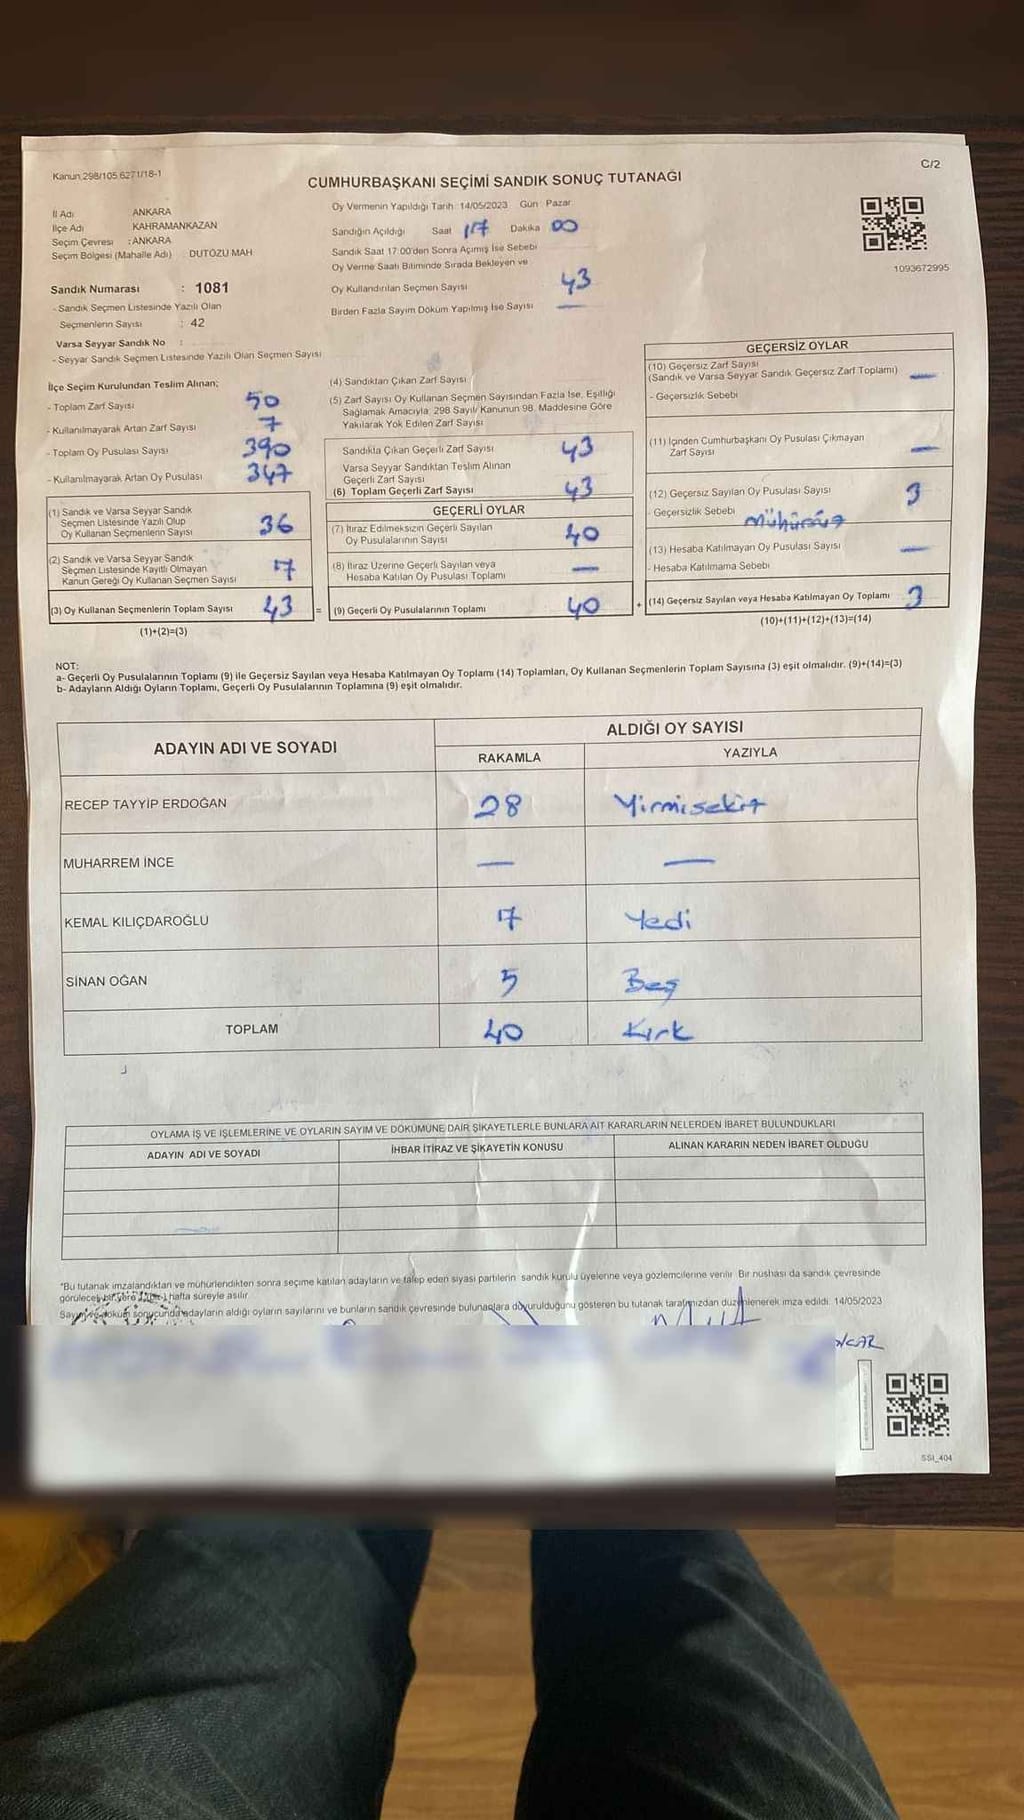 Kanun 298/105 6271/18-1
C/2
CUMHURBAŞKANI SEÇİMİ SANDIK SONUÇ TUTANAĞI
İl Adı ANKARA
İlçe Adı KAHRAMANKAZAN
Seçim Çevresi : ANKARA
Seçim Bölgesi (Mahalle Adı) : DUTÖZÜ MAH
Sandık Numarası : 1081
- Sandık Seçmen Listesinde Yazılı Olan
Seçmenlerin Sayısı : 42
Varsa Seyyar Sandık No :
- Seyyar Sandık Seçmen Listesinde Yazılı Olan Seçmen Sayısı
Oy Vermenin Yapıldığı Tarih: 14/05/2023 Gün : Pazar
Sandığın Açıldığı Saat 17 Dakika 00
Sandık Saat 17:00'den Sonra Açımış İse Sebebi
Oy Verme Saati Bitiminde Sırada Bekleyen ve
Oy Kullandırılan Seçmen Sayısı 43
Birden Fazla Sayım Döküm Yapılmış İse Sayısı —
1093672995
İlçe Seçim Kurulundan Teslim Alınan;
- Toplam Zarf Sayısı 50
- Kullanılmayarak Artan Zarf Sayısı 7
- Toplam Oy Pusulası Sayısı 390
- Kullanılmayarak Artan Oy Pusulası 347
(1) Sandık ve Varsa Seyyar Sandık
Seçmen Listesinde Yazılı Olup
Oy Kullanan Seçmenlerin Sayısı 36
(2) Sandık ve Varsa Seyyar Sandık
Seçmen Listesinde Kayıtlı Olmayan
Kanun Gereği Oy Kullanan Seçmen Sayısı 7
(3) Oy Kullanan Seçmenlerin Toplam Sayısı 43 =
(1)+(2)=(3)
(4) Sandıktan Çıkan Zarf Sayısı
(5) Zarf Sayısı Oy Kullanan Seçmen Sayısından Fazla İse, Eşitliği
Sağlamak Amacıyla; 298 Sayılı Kanunun 98. Maddesine Göre
Yakılarak Yok Edilen Zarf Sayısı
Sandıkta Çıkan Geçerli Zarf Sayısı 43
Varsa Seyyar Sandıktan Teslim Alınan
Geçerli Zarf Sayısı
(6) Toplam Geçerli Zarf Sayısı 43
GEÇERLİ OYLAR
(7) İtiraz Edilmeksizin Geçerli Sayılan
Oy Pusulalarının Sayısı 40
(8) İtiraz Üzerine Geçerli Sayılan veya
Hesaba Katılan Oy Pusulası Toplamı —
(9) Geçerli Oy Pusulalarının Toplamı 40 +
GEÇERSİZ OYLAR
(10) Geçersiz Zarf Sayısı
(Sandık ve Varsa Seyyar Sandık Geçersiz Zarf Toplamı) —
- Geçersizlik Sebebi
(11) İçinden Cumhurbaşkanı Oy Pusulası Çıkmayan
Zarf Sayısı —
(12) Geçersiz Sayılan Oy Pusulası Sayısı 3
- Geçersizlik Sebebi Mühürsüz
(13) Hesaba Katılmayan Oy Pusulası Sayısı —
- Hesaba Katılmama Sebebi
(14) Geçersiz Sayılan veya Hesaba Katılmayan Oy Toplamı 3
(10)+(11)+(12)+(13)=(14)
NOT:
a- Geçerli Oy Pusulalarının Toplamı (9) ile Geçersiz Sayılan veya Hesaba Katılmayan Oy Toplamı (14) Toplamları, Oy Kullanan Seçmenlerin Toplam Sayısına (3) eşit olmalıdır. (9)+(14)=(3)
b- Adayların Aldığı Oyların Toplamı, Geçerli Oy Pusulalarının Toplamına (9) eşit olmalıdır.
ADAYIN ADI VE SOYADI
ALDIĞI OY SAYISI
RAKAMLA YAZIYLA
RECEP TAYYİP ERDOĞAN 28 Yirmisekiz
MUHARREM İNCE — —
KEMAL KILIÇDAROĞLU 7 Yedi
SİNAN OĞAN 5 Beş
TOPLAM 40 Kırk
OYLAMA İŞ VE İŞLEMLERİNE VE OYLARIN SAYIM VE DÖKÜMÜNE DAİR ŞİKAYETLERLE BUNLARA AİT KARARLARIN NELERDEN İBARET BULUNDUKLARI
ADAYIN ADI VE SOYADI İHBAR İTİRAZ VE ŞİKAYETİN KONUSU ALINAN KARARIN NEDEN İBARET OLDUĞU
*Bu tutanak imzalandıktan ve mühürlendikten sonra seçime katılan adayların ve talep eden siyasi partilerin sandık kurulu üyelerine veya gözlemcilerine verilir. Bir nüshası da sandık çevresinde
görülecek bir yere hafta süreyle asılır.
Sayım döküm sonucunda adayların aldığı oyların sayılarını ve bunların sandık çevresinde bulunanlara duyurulduğunu gösteren bu tutanak tarafımızdan düzenlenerek imza edildi. 14/05/2023
SSI_404